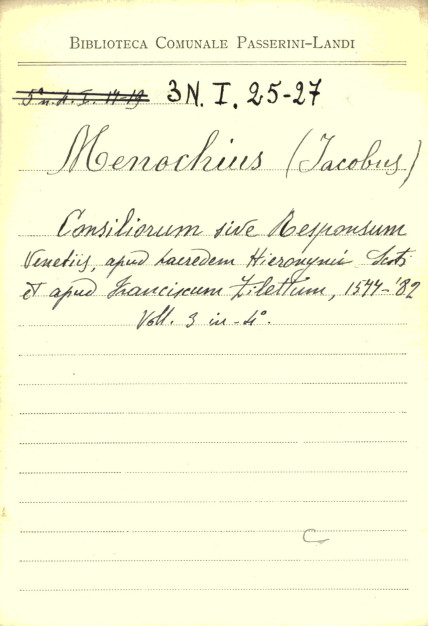 BIBLIOTECA COMUNALE PASSERINI-LANDI
3N. I. 25-27
Menochius (Jacobus)
Consiliorum sive Responsum
Venetiis, apud haeredem Hieronymi Scoti
et apud Franciscum Zilettum, 1577-'82
Voll. 3 in-4°.
C